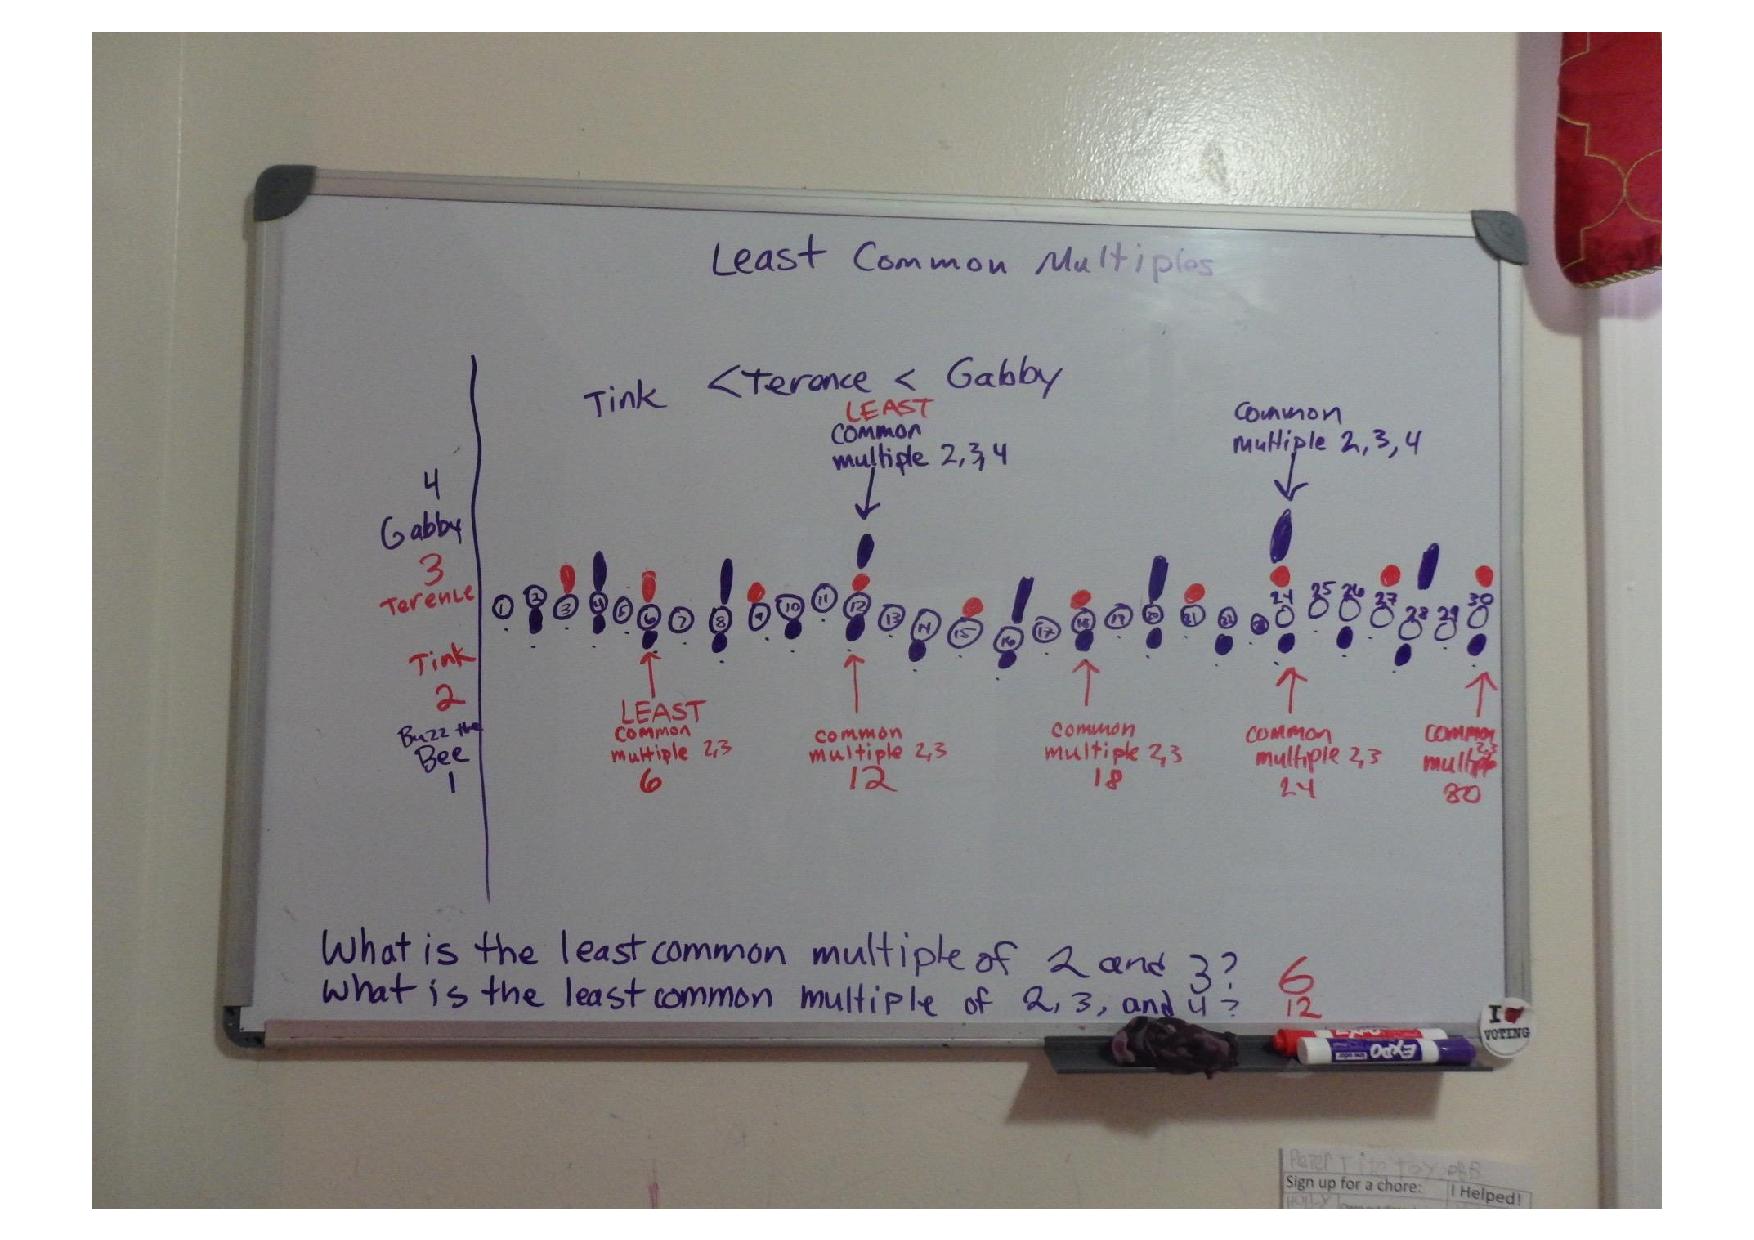 Least Common Multiples
Tink < Terence < Gabby
LEAST
common
multiple 2,3,4
common
multiple 2,3,4
4
Gabby
3
Terence
Tink
2
Buzz the
Bee
1
1 2 3 4 5 6 7 8 9 10 11 12 13 14 15 16 17 18 19 20 21 22 23 24 25 26 27 28 29 30
LEAST
common
multiple 2,3
6
common
multiple 2,3
12
common
multiple 2,3
18
common
multiple 2,3
24
common
multiple 2,3
30
What is the least common multiple of 2 and 3? 6
What is the least common multiple of 2, 3, and 4? 12
I
VOTING
EXPO
EXPO
Sign up for a chore:
I Helped!